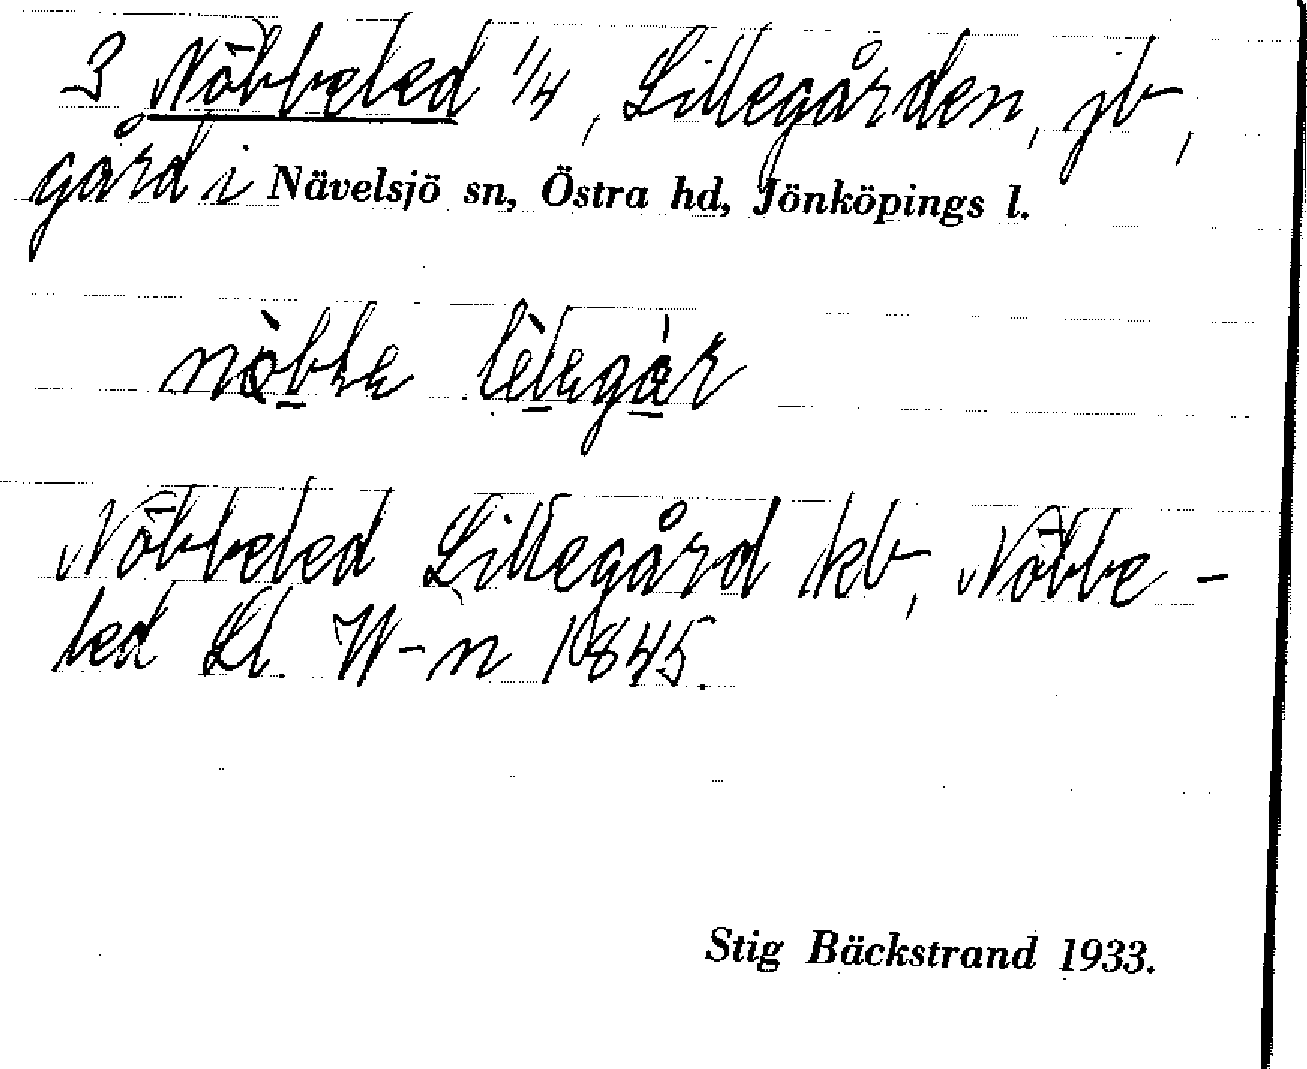 3 Nöbbeled 1/4, Lillegården, jb,
gård i Nävelsjö sn, Östra hd, Jönköpings l.
Nöbbeled Lillegård kb, Nöbbe-
led Ll. W-n 1845.
Stig Bäckstrand 1933.